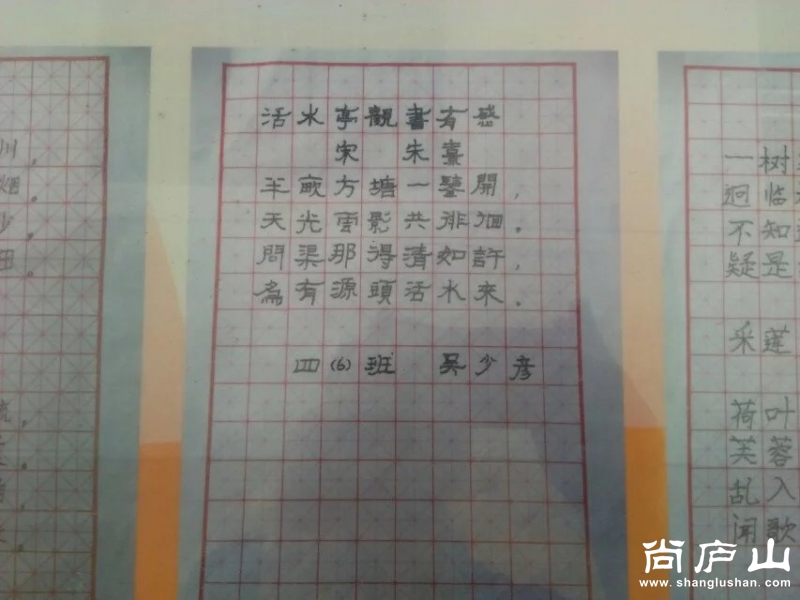 川，
烟
少，
田。
活水亭觀書有感
宋 朱熹
半畝方塘一鑒開，
天光雲影共徘徊。
問渠那得清如許，
為有源頭活水來。
四(6)班 吴少彦
一树
迥临
不知
疑是
采莲
荷叶
芙蓉
乱入
闻歌
尚庐山
www.shanglushan.com